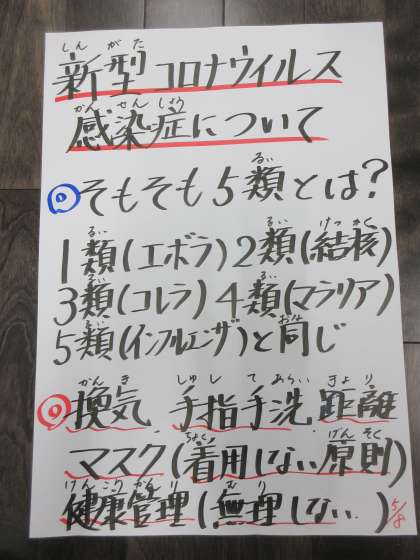 しんがた
新型コロナウイルス
かんせんしょう
感染症について
るい
◎そもそも5類とは?
るい るい けっかく
1類(エボラ)2類(結核)
るい るい
3類(コレラ)4類(マラリア)
るい おな
5類(インフルエンザ)と同じ
かんき しゅし てあらい きょり
◎換気 手指手洗 距離
ちゃくよう げんそく
マスク(着用しない原則)
けんこうかんり むり
健康管理(無理しない )
5/8